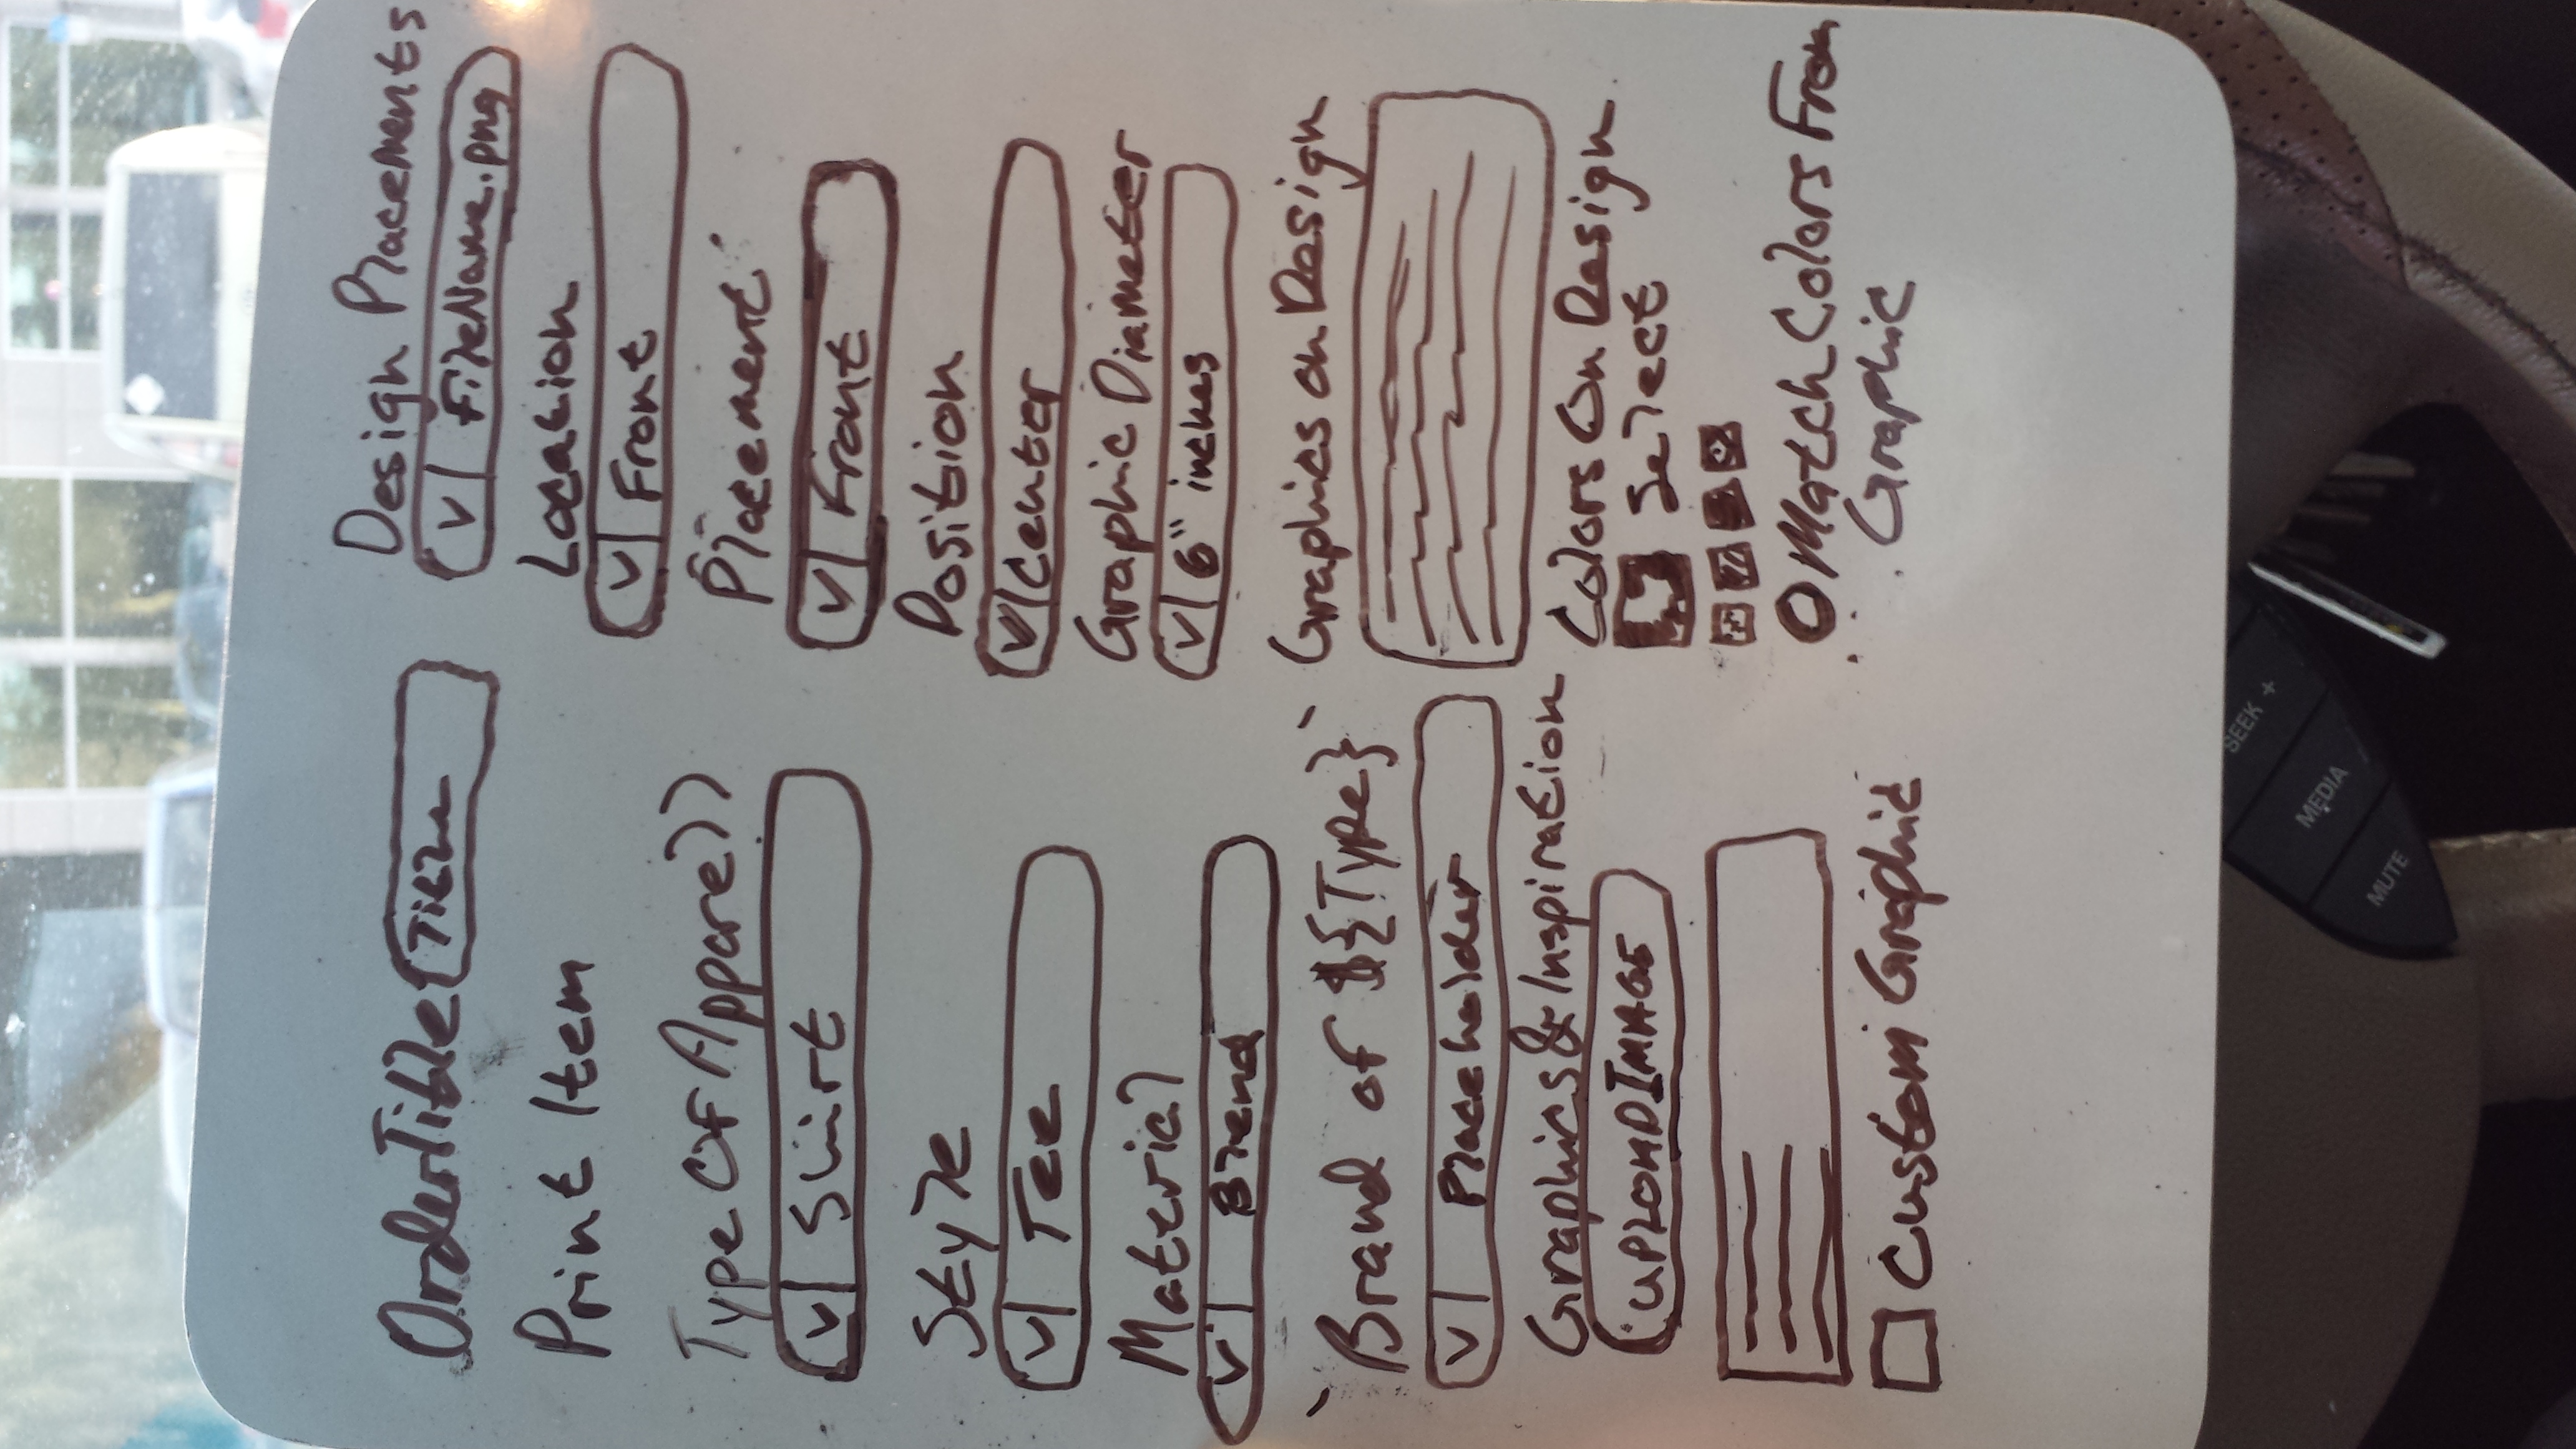 OrderTitle Title
Print Item
Type Of Apparell
Shirt
Style
Tee
Material
Blend
`Brand of ${Type}`
Placeholder
Graphics & Inspiration
UPLOADIMAGE
Custom Graphic
Design Placements
FileName.png
Location
Front
Placement
Front
Position
Center
Graphic Diameter
6" inches
Graphics on Design
Colors On Design
Select
Match Colors From
Graphic
SEEK +
MEDIA
MUTE